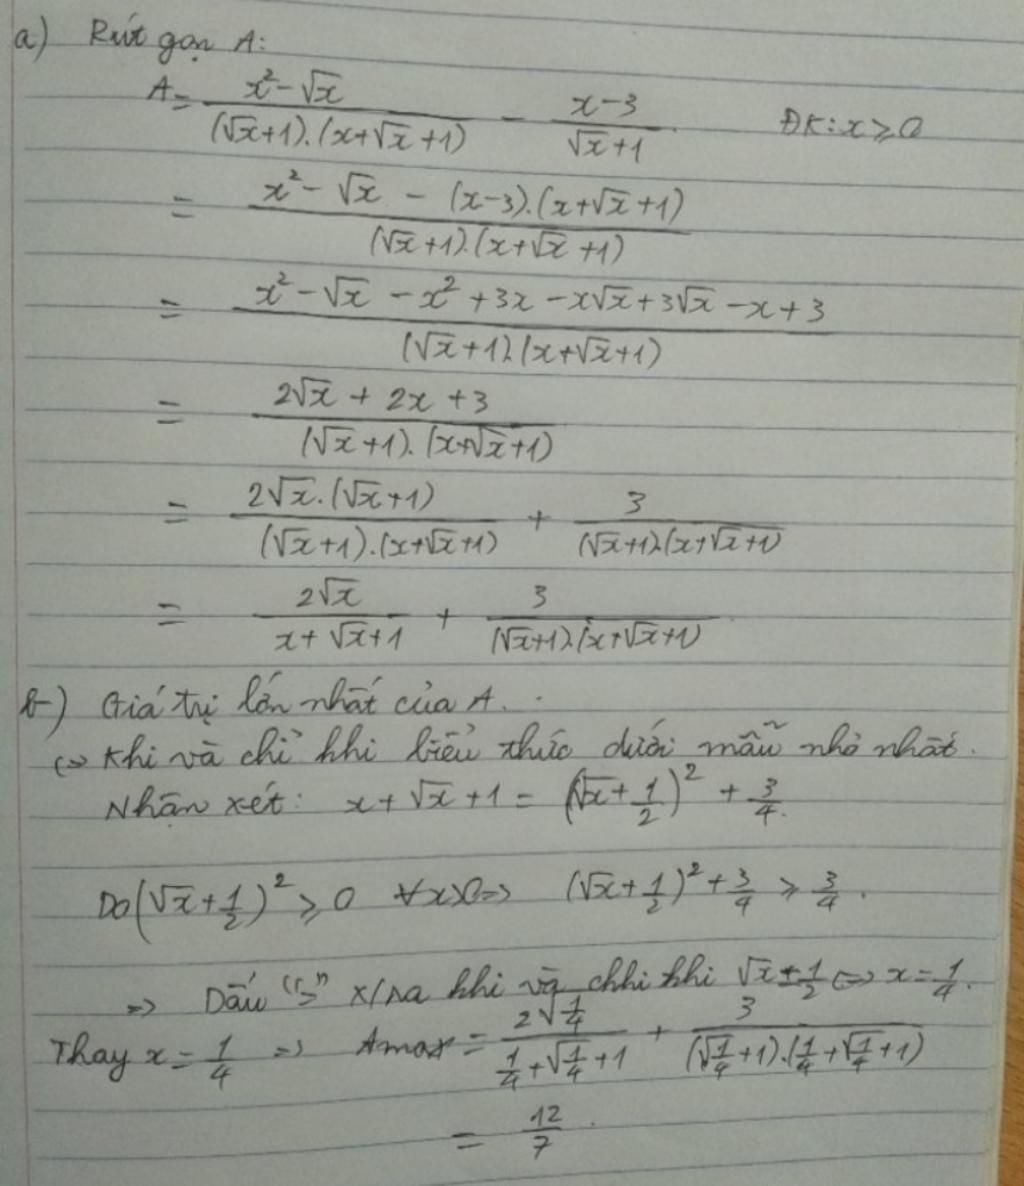 a) Rút gọn A:
A = \frac{x^2 - \sqrt{x}}{(\sqrt{x}+1).(x+\sqrt{x}+1)} - \frac{x-3}{\sqrt{x}+1} ĐK: x ⩾ 0
= \frac{x^2 - \sqrt{x} - (x-3).(x+\sqrt{x}+1)}{(\sqrt{x}+1).(x+\sqrt{x}+1)}
= \frac{x^2 - \sqrt{x} - x^2 + 3x - x\sqrt{x} + 3\sqrt{x} - x + 3}{(\sqrt{x}+1).(x+\sqrt{x}+1)}
= \frac{2\sqrt{x} + 2x + 3}{(\sqrt{x}+1).(x+\sqrt{x}+1)}
= \frac{2\sqrt{x}.(\sqrt{x}+1)}{(\sqrt{x}+1).(x+\sqrt{x}+1)} + \frac{3}{(\sqrt{x}+1).(x+\sqrt{x}+1)}
= \frac{2\sqrt{x}}{x+\sqrt{x}+1} + \frac{3}{(\sqrt{x}+1).(x+\sqrt{x}+1)}
b) Giá trị lớn nhất của A.
⇔ Khi và chỉ khi biểu thức dưới mẫu nhỏ nhất.
Nhận xét: x + \sqrt{x} + 1 = (\sqrt{x} + \frac{1}{2})^2 + \frac{3}{4}.
Do (\sqrt{x} + \frac{1}{2})^2 ⩾ 0 ∀x>0 ⇒ (\sqrt{x} + \frac{1}{2})^2 + \frac{3}{4} ⩾ \frac{3}{4}.
⇒ Dấu "=" x/ra khi và chhi khi \sqrt{x} = \frac{1}{2} ⇔ x = \frac{1}{4}.
Thay x = \frac{1}{4} ⇒ Amax = \frac{2\sqrt{\frac{1}{4}}}{\frac{1}{4}+\sqrt{\frac{1}{4}}+1} + \frac{3}{(\sqrt{\frac{1}{4}}+1).(\frac{1}{4}+\sqrt{\frac{1}{4}}+1)}
= \frac{12}{7}.